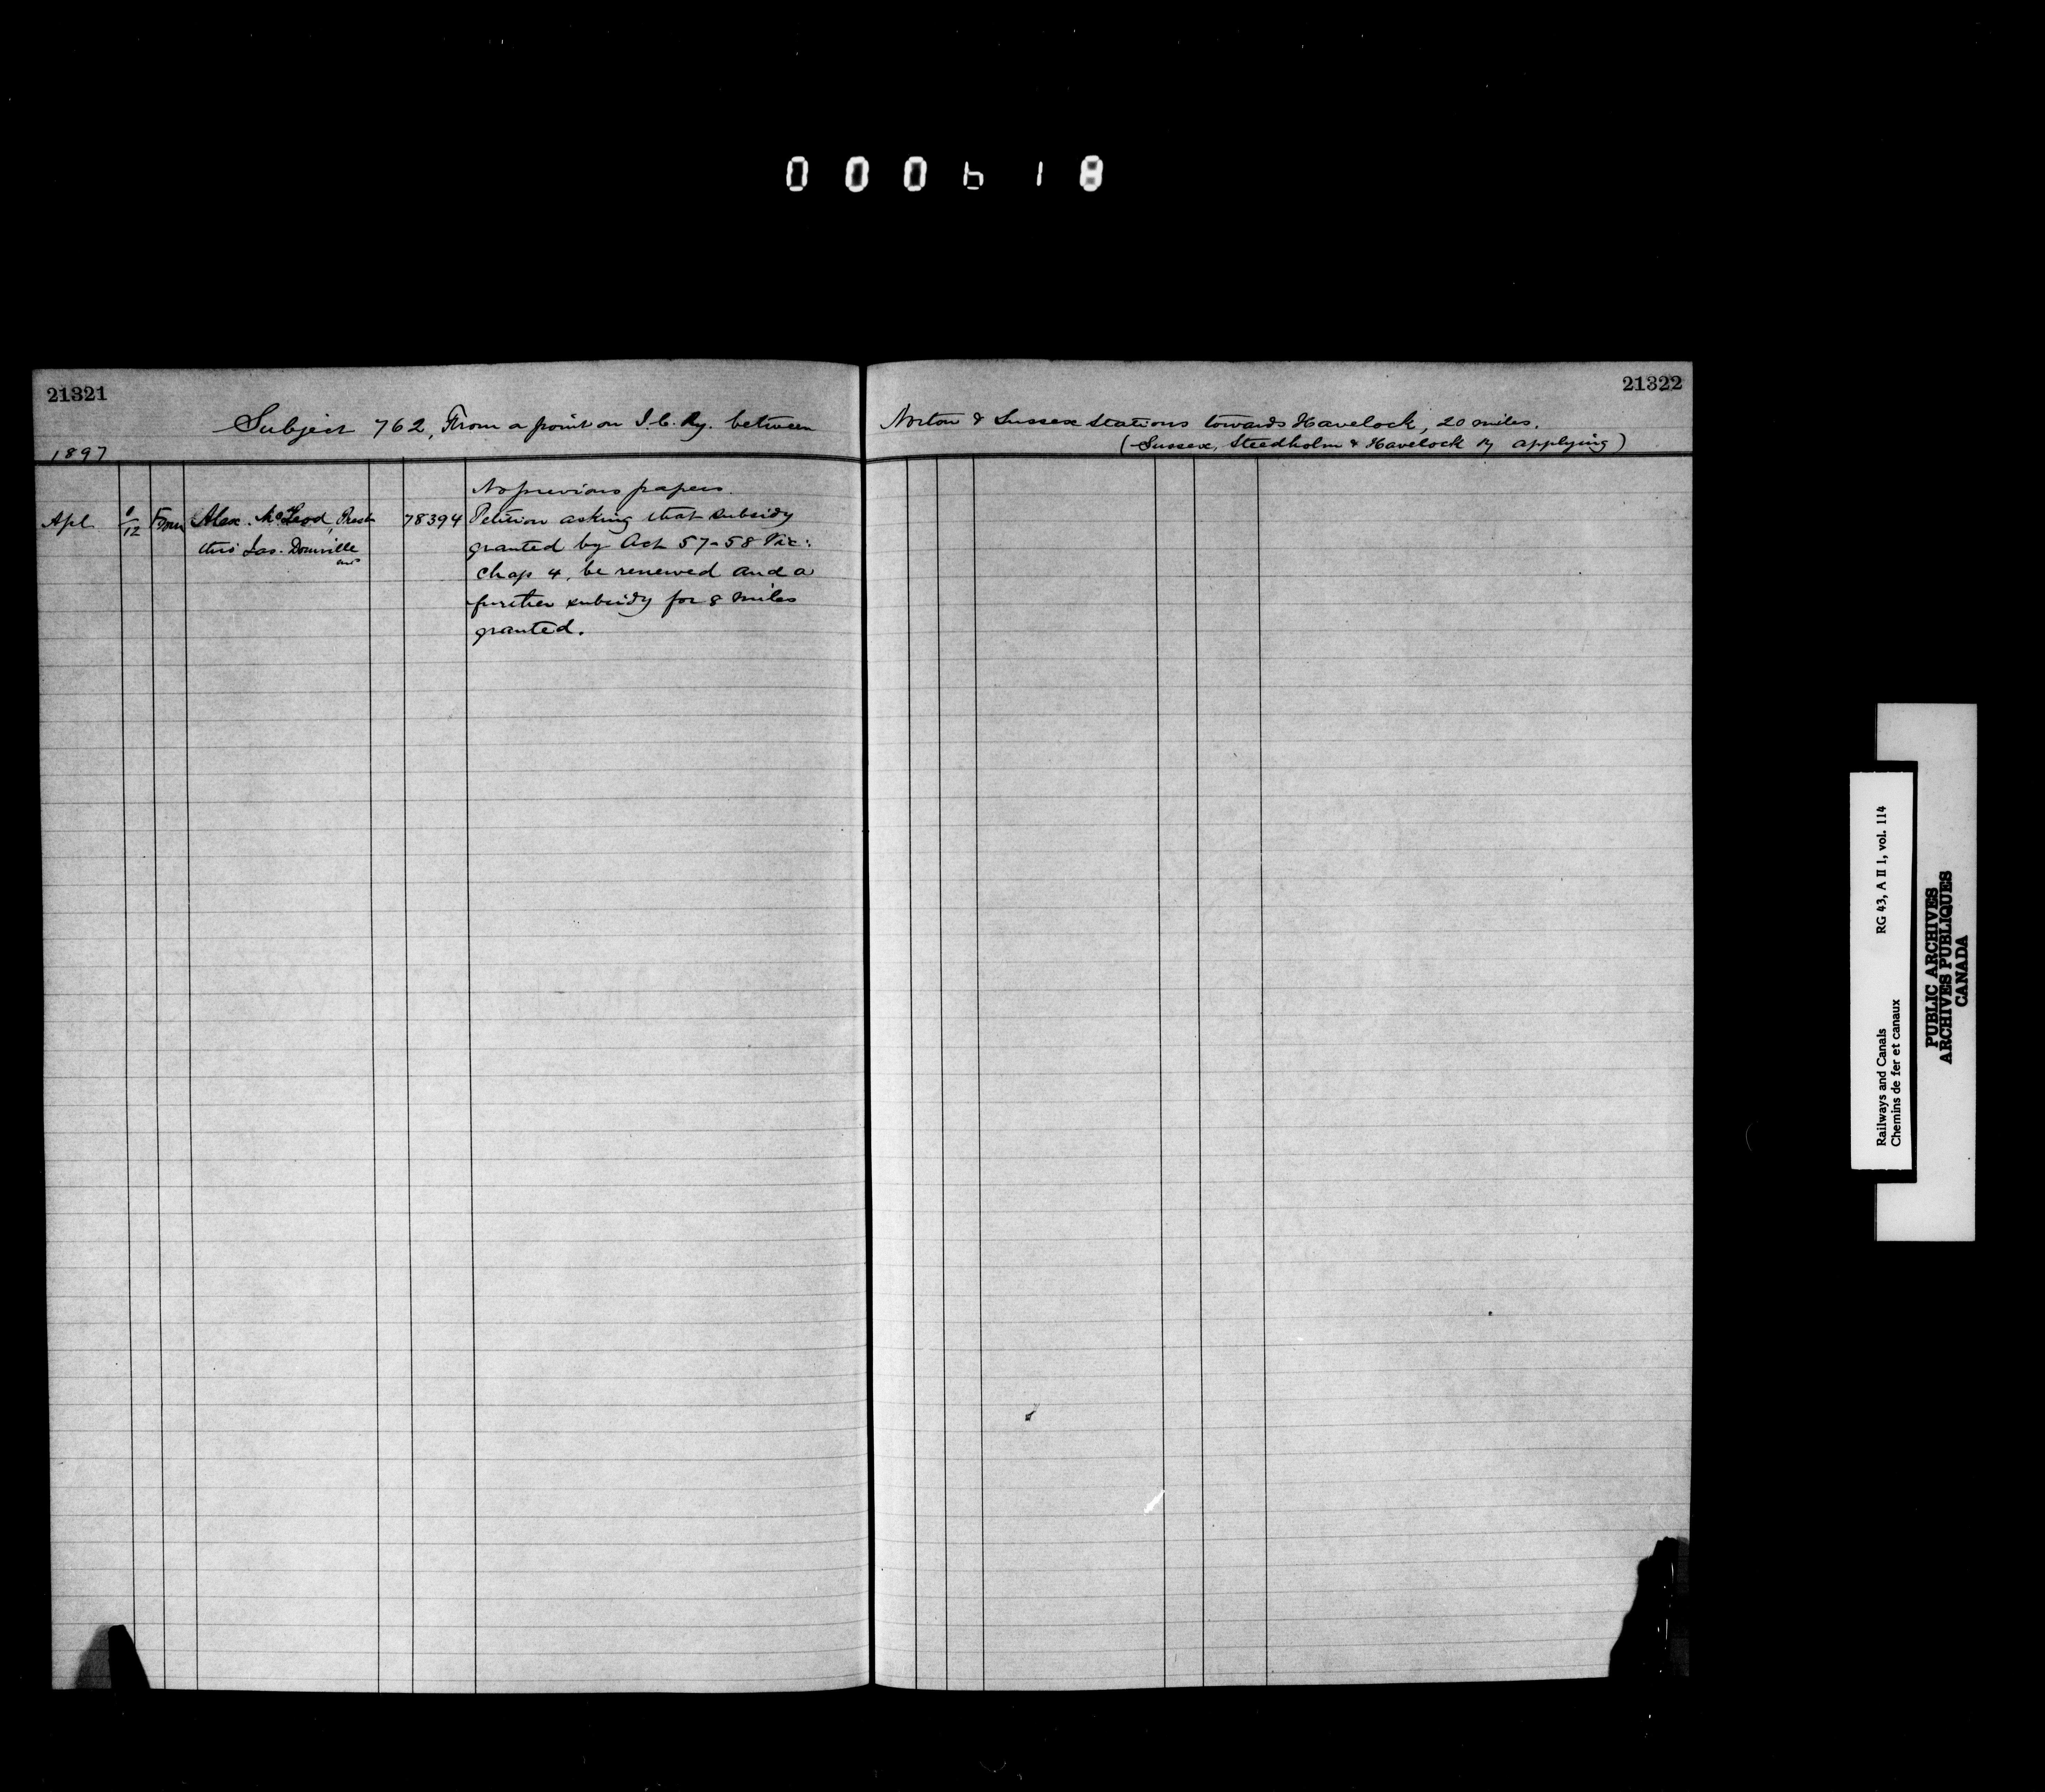 000618
21321
Subject 762, From a point on I.C. Ry. between
1897
No previous papers.
Apl 12 From Alex. McLeod, Prest 78394 Petition asking that subsidy
thro' Jas. Domville granted by Act 57-58 Vic:
Chap 4, be renewed and a
further subsidy for 8 miles
granted.
21322
Norton & Sussex Stations towards Havelock, 20 miles.
(Sussex, Steedholm & Havelock Ry applying)
Railways and Canals RG 43, A II 1, vol. 114
Chemins de fer et canaux
PUBLIC ARCHIVES
ARCHIVES PUBLIQUES
CANADA